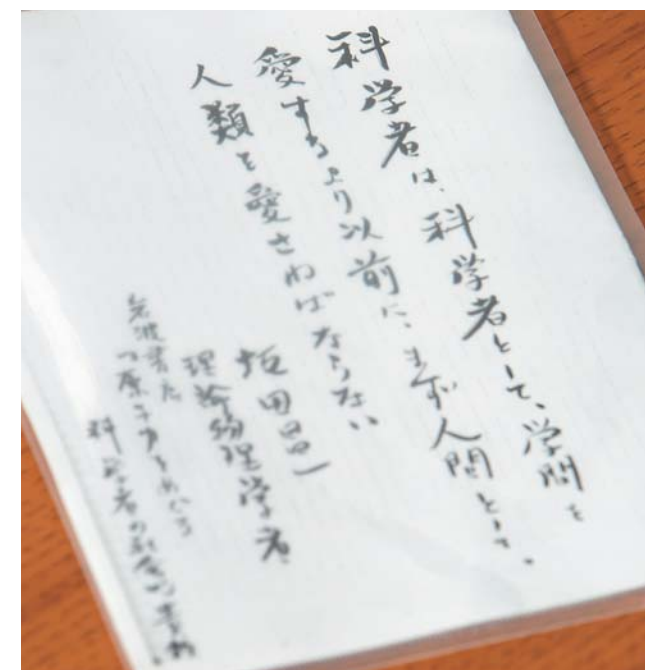 科学者は、科学者として、学問を
愛するより以前に、まず人間として、
人類を愛さねばならない
坂田昌一
理論物理学者
岩波書店
「原子力をめぐる
科学者の社会的責任